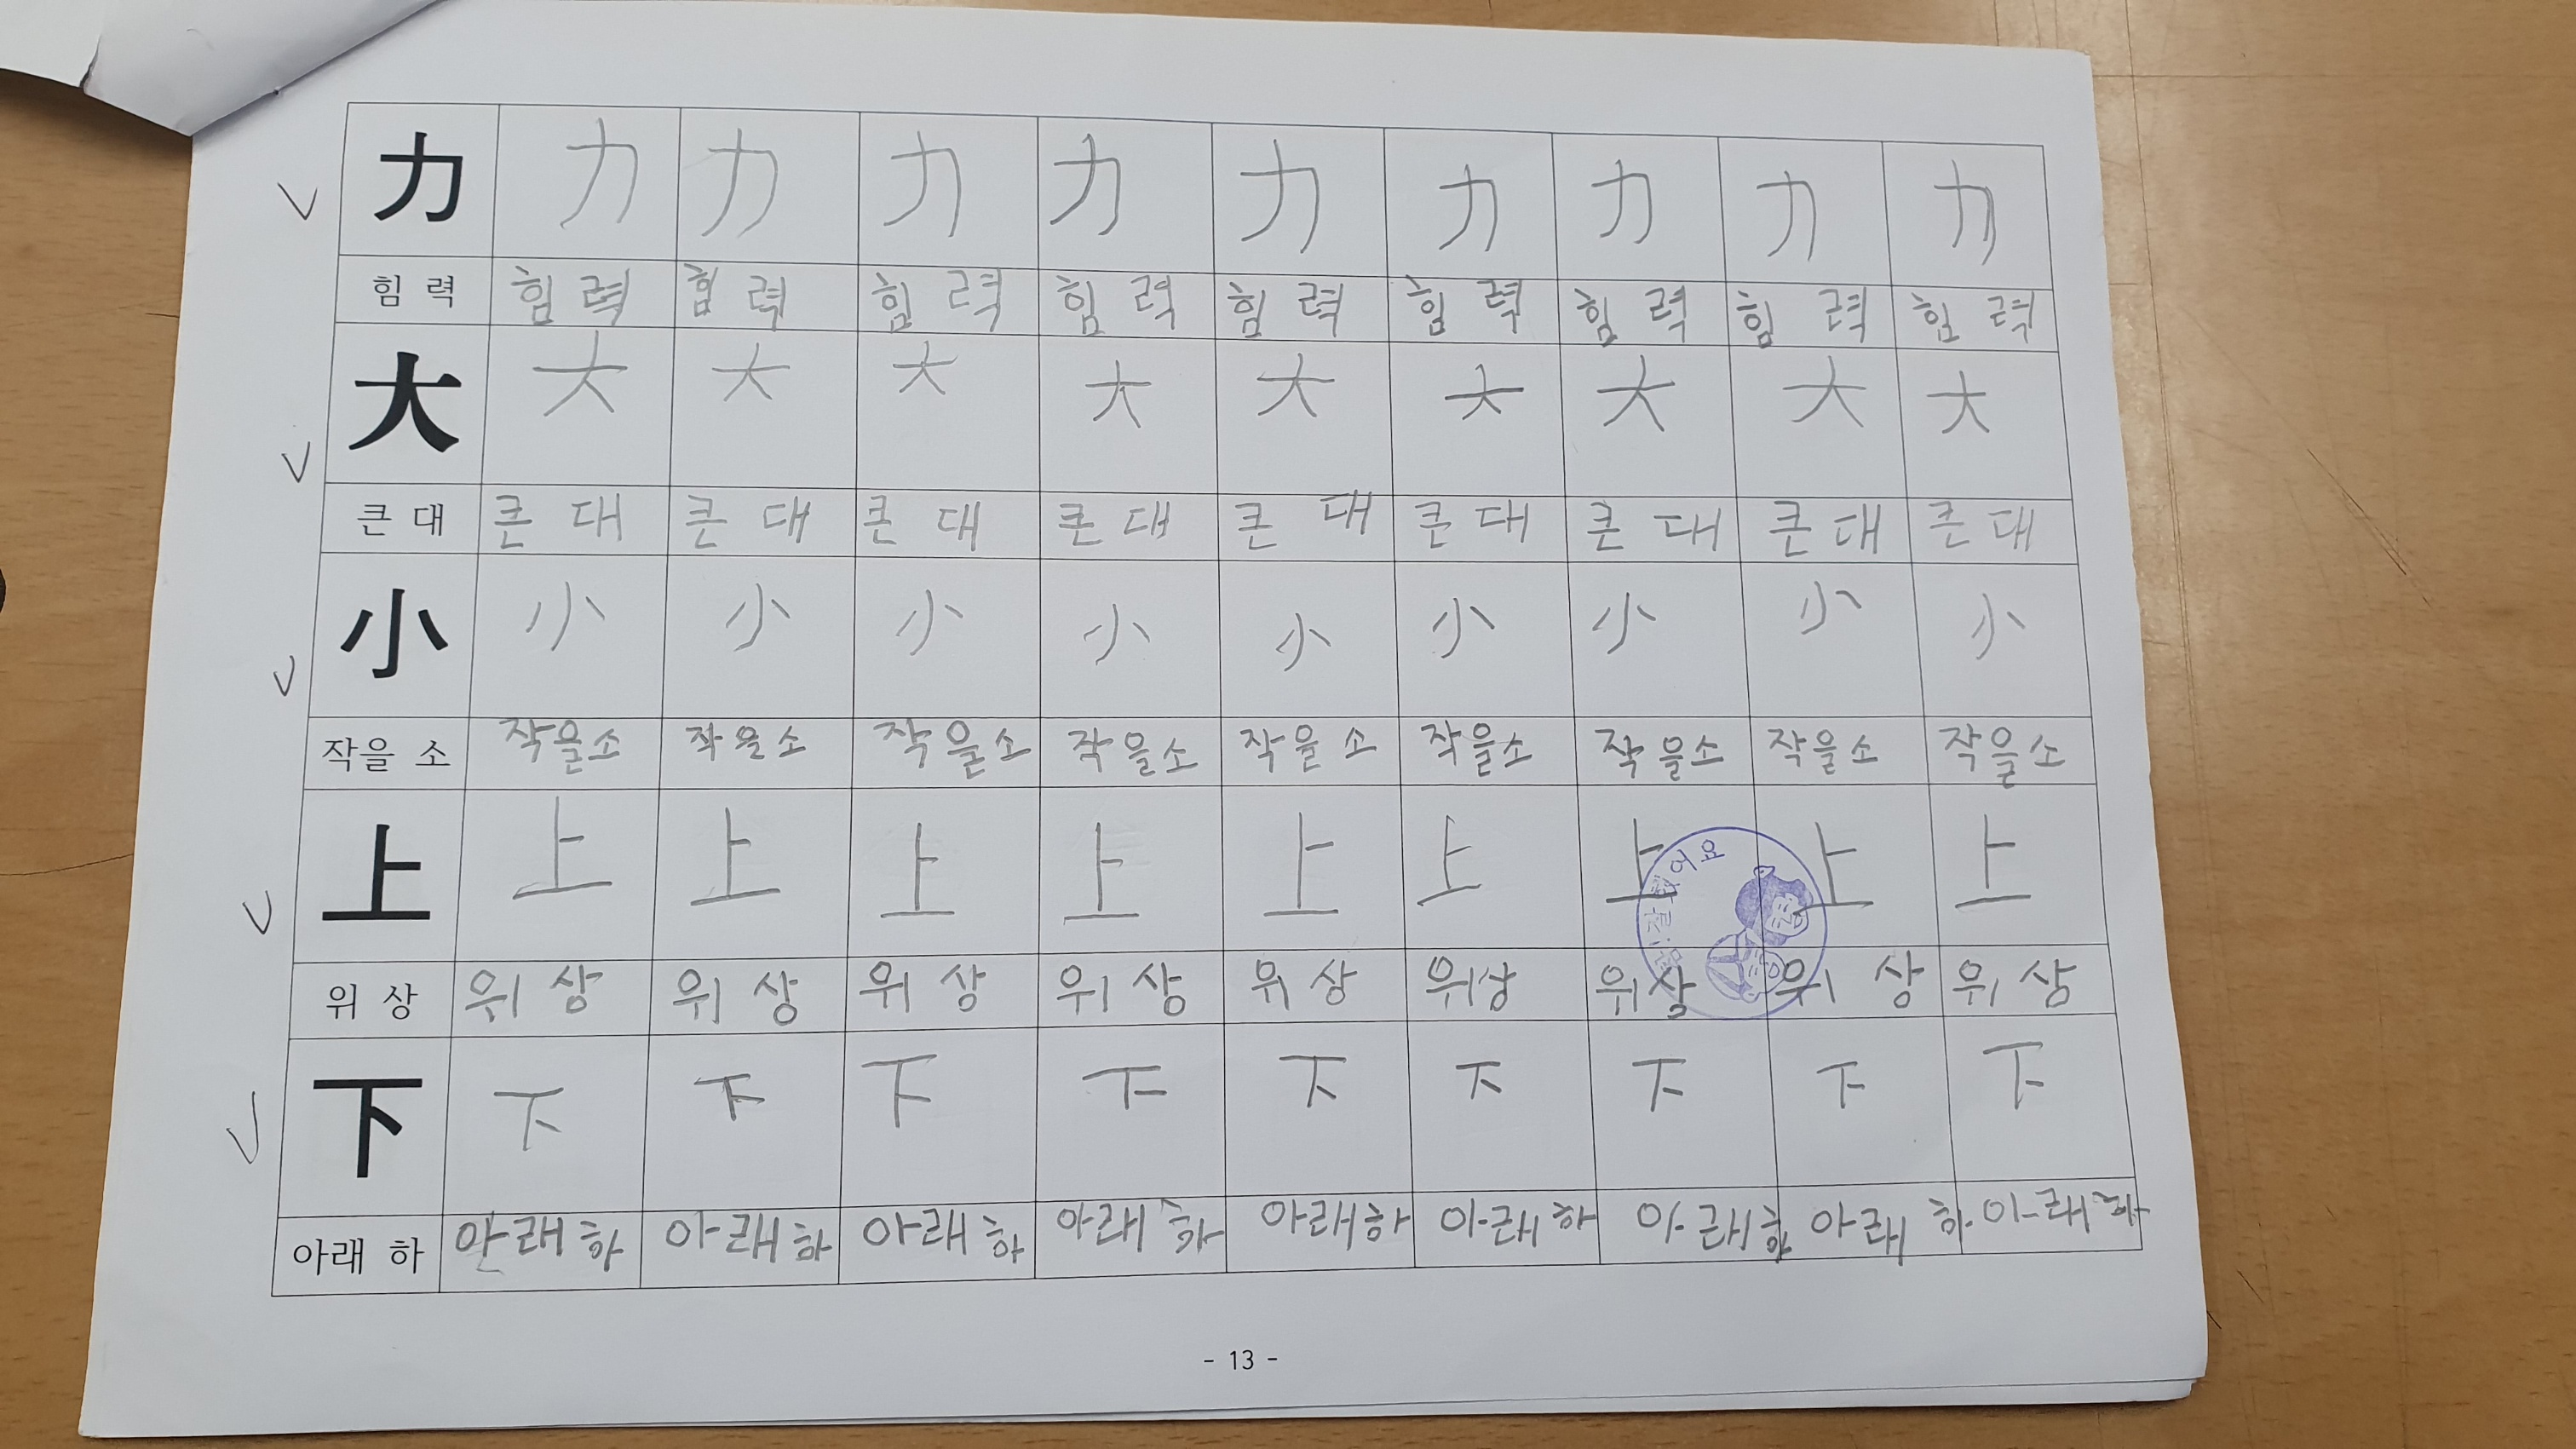 力 力 力 力 力 力 力 力 力 力
힘 력 힘 력 힘 력 힘 력 힘 력 힘 력 힘 력 힘 력 힘 력 힘 력
大 大 大 大 大 大 大 大 大 大
큰 대 큰 대 큰 대 큰 대 큰 대 큰 대 큰 대 큰 대 큰 대 큰 대
小 小 小 小 小 小 小 小 小 小
작을 소 작을소 작을소 작을소 작을소 작을 소 작을소 작을소 작을소 작을소
上 上 上 上 上 上 上 上 上 上
어요
위 상 위 상 위 상 위 상 위 상 위 상 위상 위상 위 상 위 상
下 下 下 下 下 下 下 下 下 下
아래 하 아래 하 아래 하 아래 하 아래 하 아래하 아래 하 아래하 아래 하 아래하
- 13 -